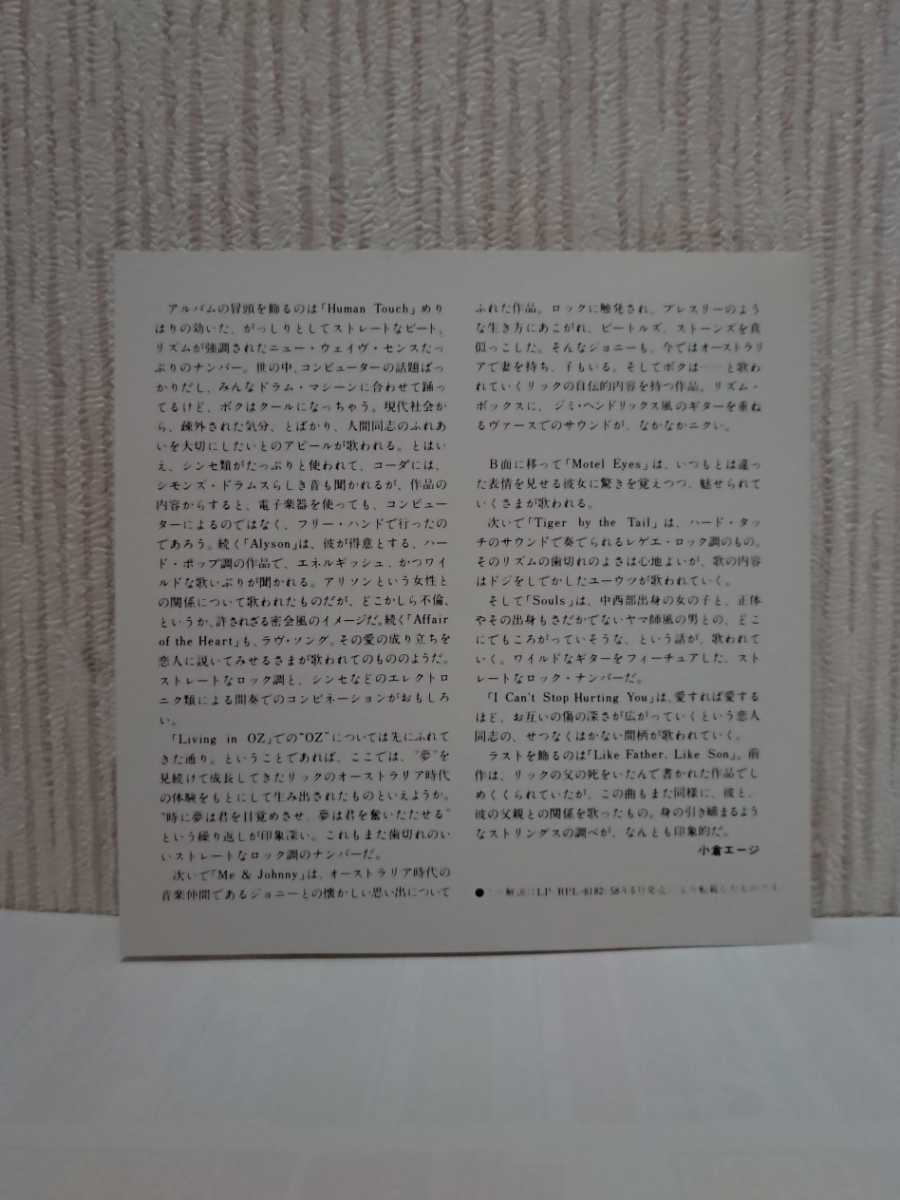 アルバムの冒頭を飾るのは「Human Touch」めり
はりの効いた、がっしりとしてストレートなビート、
リズムが強調されたニュー・ウェイヴ・センスたっ
ぷりのナンバー。世の中、コンピューターの話題ばっ
かりだし、みんなドラム・マシーンに合わせて踊っ
てるけど、ボクはクールになっちゃう。現代社会か
ら、疎外された気分、とばかり、人間同志のふれあ
いを大切にしたいとのアピールが歌われる。とはい
え、シンセ類がたっぷりと使われて、コーダには、
シモンズ・ドラムスらしき音も聞かれるが、作品の
内容からすると、電子楽器を使っても、コンピュー
ターによるのではなく、フリー・ハンドで行ったの
であろう。続く「Alyson」は、彼が得意とする、ハー
ド・ポップ調の作品で、エネルギッシュ、かつワイ
ルドな歌いぶりが聞かれる。アリソンという女性と
の関係について歌われたものだが、どこかしら不倫、
というか、許されざる密会風のイメージだ。続く「Affair
of the Heart」も、ラヴ・ソング。その愛の成り立ちを
恋人に説いてみせるさまが歌われてのもののようだ。
ストレートなロック調と、シンセなどのエレクトロ
ニク類による間奏でのコンビネーションがおもしろ
い。
「Living in OZ」での"OZ"については先にふれて
きた通り。ということであれば、ここでは、"夢"を
見続けて成長してきたリックのオーストラリア時代
の体験をもとにして生み出されたものといえようか。
"時に夢は君を目覚めさせ、夢は君を奮いたたせる"
という繰り返しが印象深い。これもまた歯切れのい
いストレートなロック調のナンバーだ。
次いで「Me & Johnny」は、オーストラリア時代の
音楽仲間であるジョニーとの懐かしい思い出について
ふれた作品。ロックに触発され、プレスリーのよう
な生き方にあこがれ、ビートルズ、ストーンズを真
似っこした。そんなジョニーも、今ではオーストラリ
アで妻を持ち、子もいる。そしてボクは……と歌わ
れていくリックの自伝的内容を持つ作品。リズム・
ボックスに、ジミ・ヘンドリックス風のギターを重ね
るヴァースでのサウンドが、なかなかニクい。
B面に移って「Motel Eyes」は、いつもとは違っ
た表情を見せる彼女に驚きを覚えつつ、魅せられて
いくさまが歌われる。
次いで「Tiger by the Tail」は、ハード・タッ
チのサウンドで奏でられるレゲエ・ロック調のもの。
そのリズムの歯切れのよさは心地よいが、歌の内容
はドジをしでかしたユーウツが歌われていく。
そして「Souls」は、中西部出身の女の子と、正体
やその出身もさだかでないヤマ師風の男との、どこ
にでもころがっていそうな、という話が、歌われて
いく。ワイルドなギターをフィーチュアした、スト
レートなロック・ナンバーだ。
「I Can't Stop Hurting You」は、愛すれば愛する
ほど、お互いの傷の深さが広がっていくという恋人
同志の、せつなくはかない間柄が歌われていく。
ラストを飾るのは「Like Father, Like Son」。前
作は、リックの父の死をいたんで書かれた作品でし
めくくられていたが、この曲もまた同様に、彼と、
彼の父親との関係を歌ったもの。身の引き締まるよう
なストリングスの調べが、なんとも印象的だ。
小倉エージ
●この解説はLP RPL-8182・58年5月発売 より転載したものです。